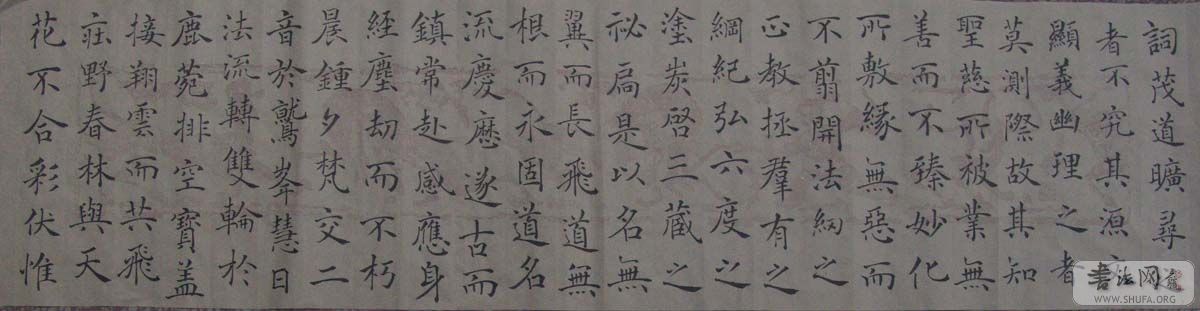 詞茂道曠尋
者不究其源
顯義幽理之者
莫測際故其知
聖慈所被業無
善而不臻妙化
所敷緣無惡而
不翦開法網之
正教拯羣有之
綱紀弘六度之
塗炭啓三藏之
祕扃是以名無
翼而長飛道無
根而永固道名
流慶歷遂古而
鎮常赴感應身
經塵劫而不朽
晨鍾夕梵交二
音於鷲峯慧日
法流轉雙輪於
鹿菀排空寶盖
接翔雲而共飛
莊野春林與天
花不合彩伏惟
書法网
WWW.SHUFA.ORG